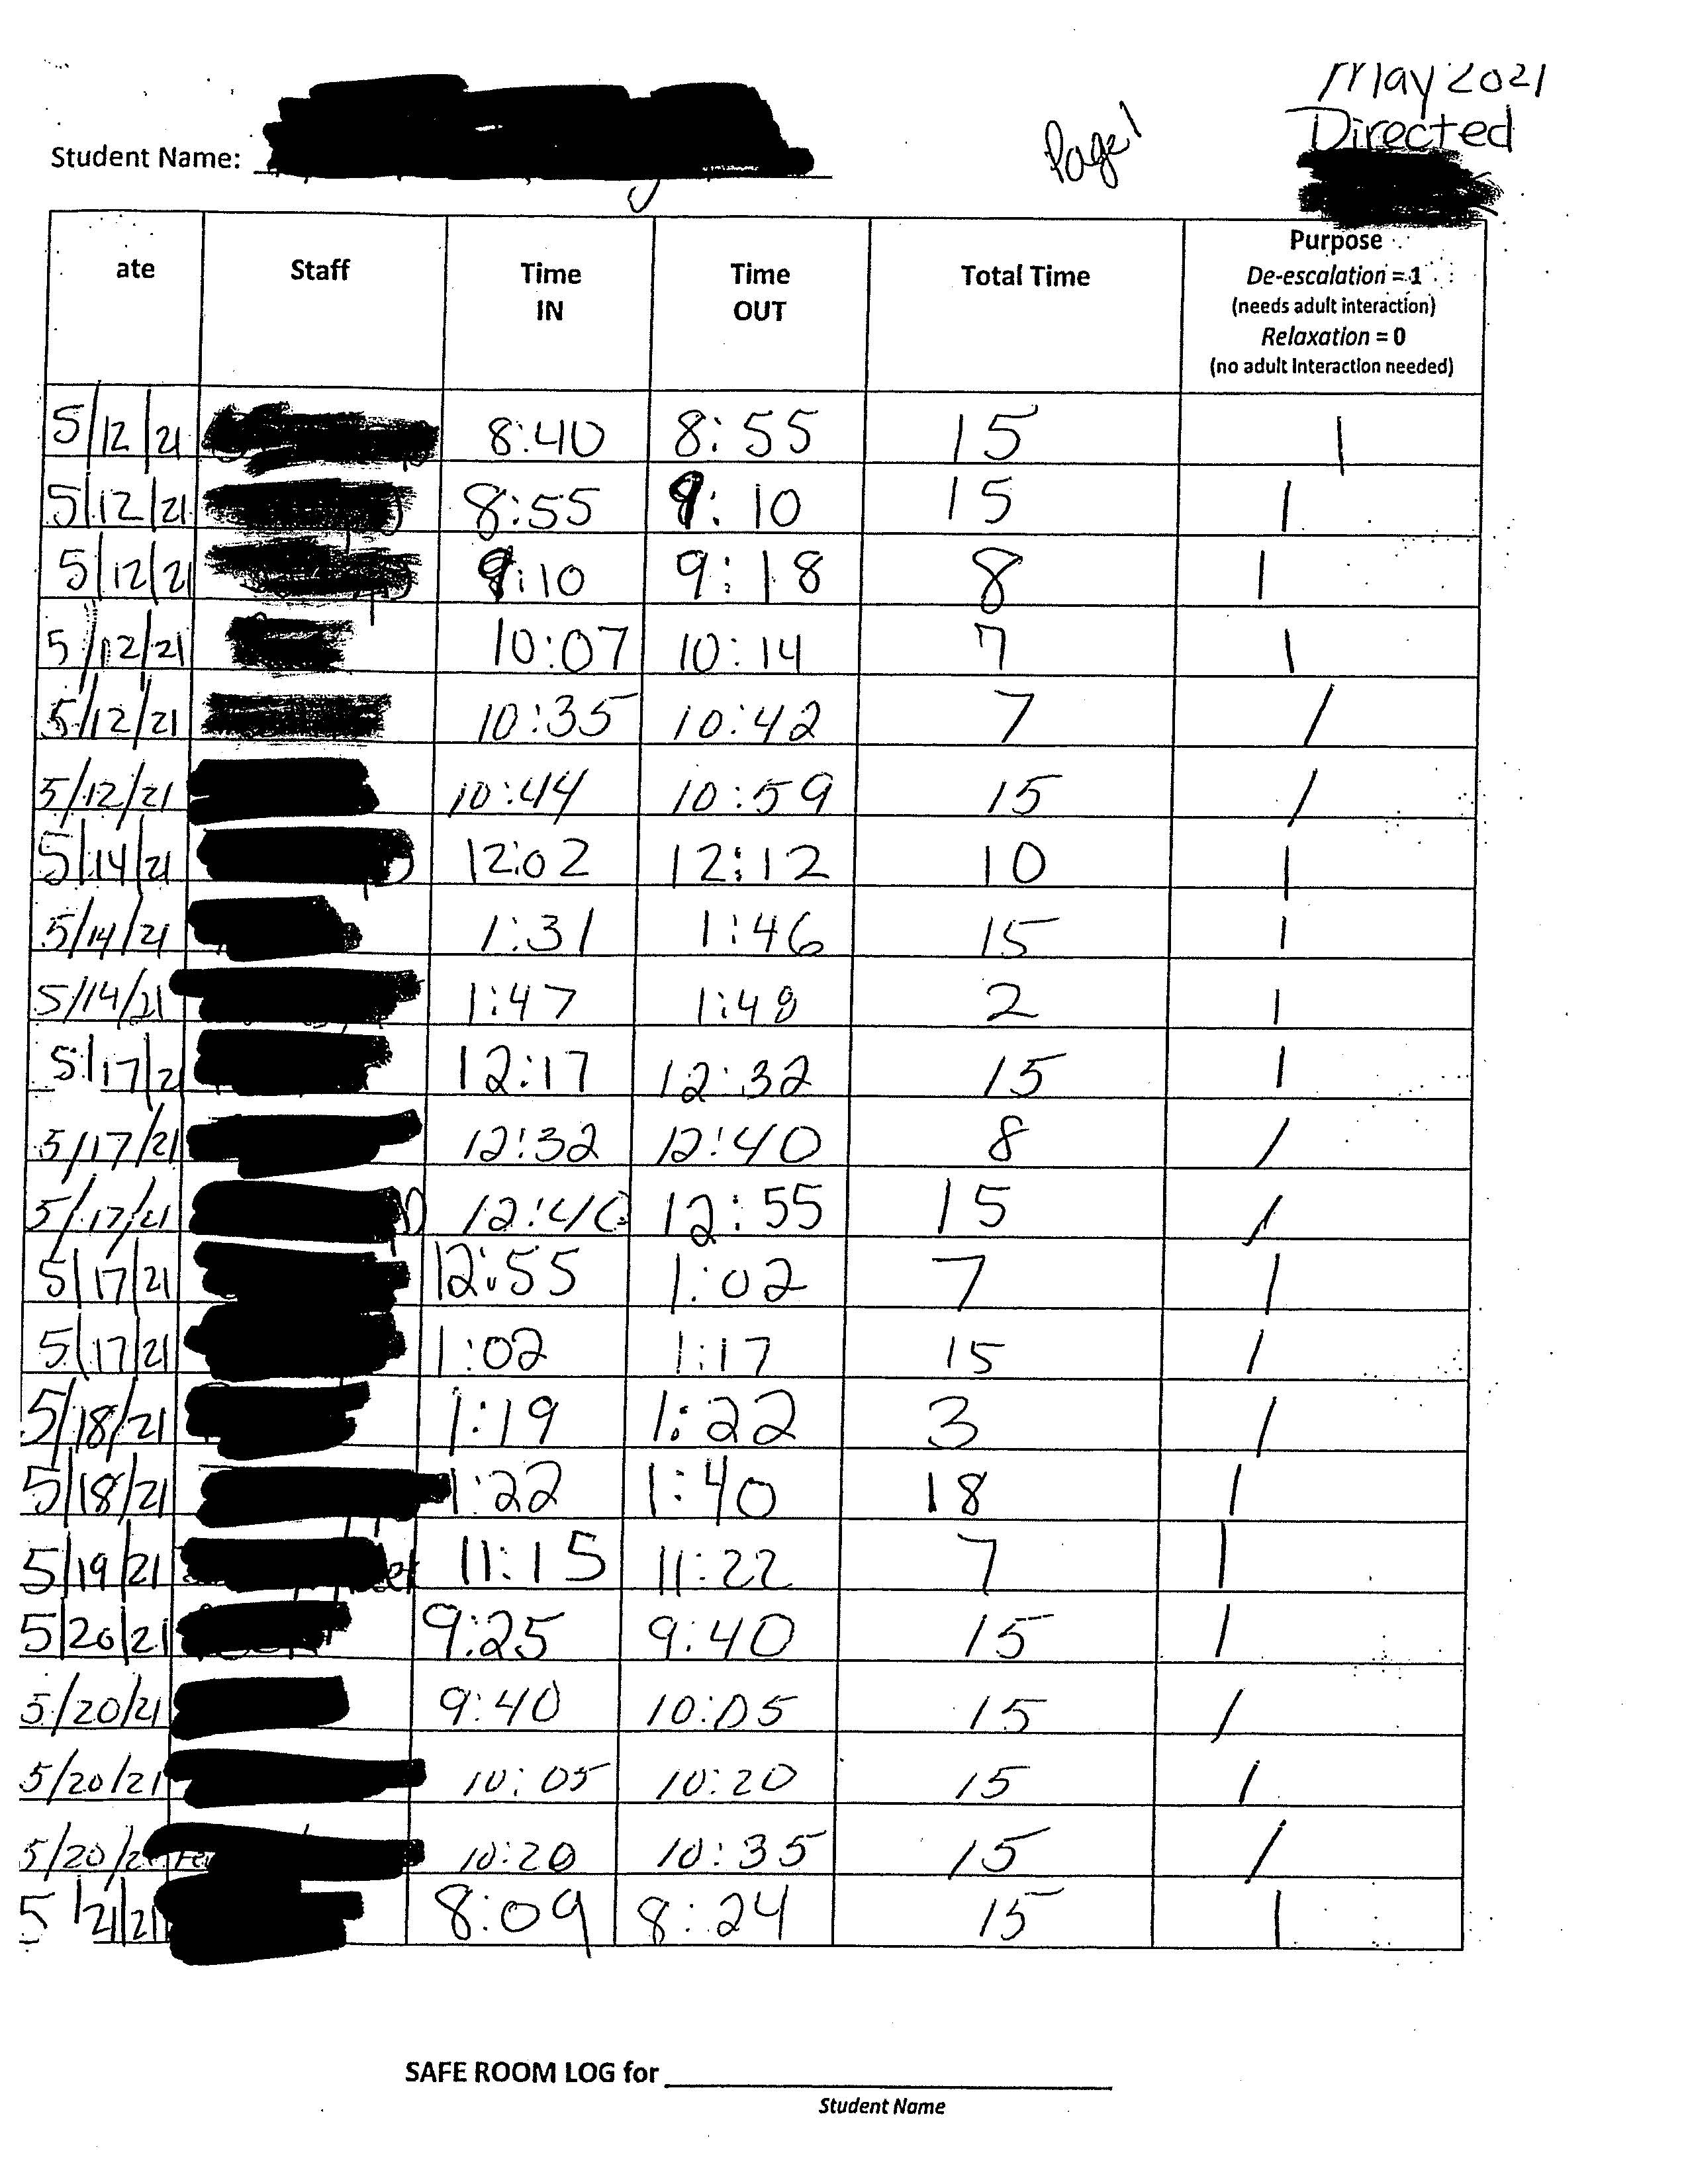 May 2021
Directed
Page 1
Student Name:
ate Staff Time IN Time OUT Total Time Purpose
De-escalation = 1
(needs adult interaction)
Relaxation = 0
(no adult interaction needed)
5/12/21 8:40 8:55 15 1
5/12/21 8:55 9:10 15 1
5/12/21 9:10 9:18 8 1
5/12/21 10:07 10:14 7 1
5/12/21 10:35 10:42 7 1
5/12/21 10:44 10:59 15 1
5/14/21 12:02 12:12 10 1
5/14/21 1:31 1:46 15 1
5/14/21 1:47 1:48 2 1
5/17/2 12:17 12:32 15 1
5/17/21 12:32 12:40 8 1
5/17/21 12:40 12:55 15 1
5/17/21 12:55 1:02 7 1
5/17/21 1:02 1:17 15 1
5/18/21 1:19 1:22 3 1
5/18/21 1:22 1:40 18 1
5/19/21 11:15 11:22 7 1
5/20/21 9:25 9:40 15 1
5/20/21 9:40 10:05 15 1
5/20/21 10:05 10:20 15 1
5/20/2 10:20 10:35 15 1
5/21/21 8:09 8:24 15 1
SAFE ROOM LOG for
Student Name